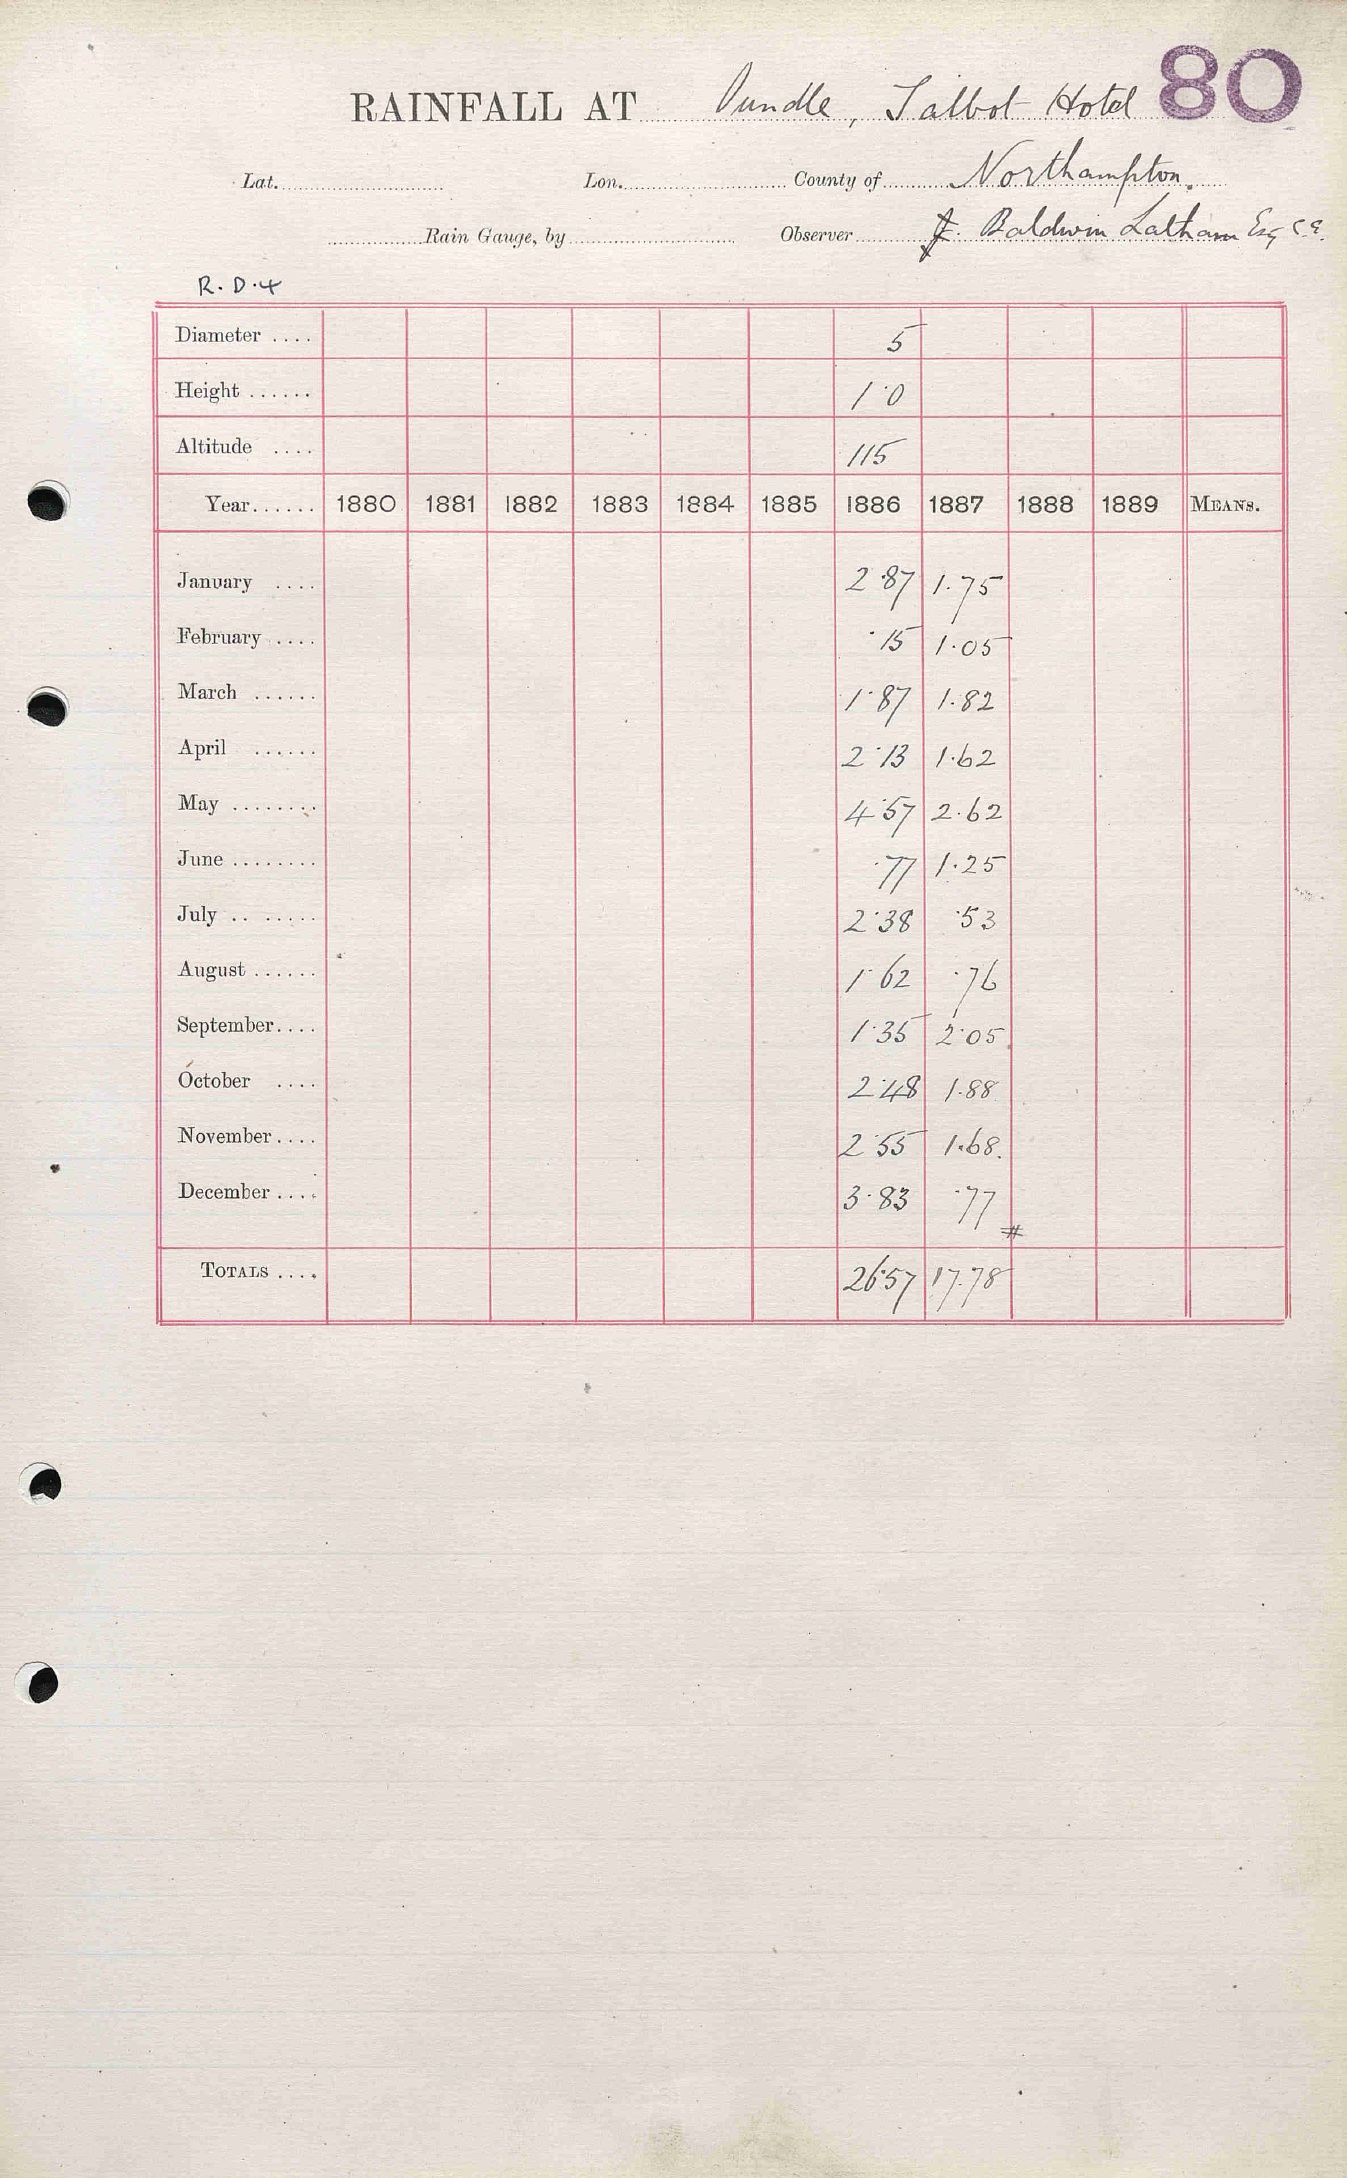 80
RAINFALL AT Oundle, Talbot Hotel
Lat. Lon. County of Northampton.
Rain Gauge, by Observer Baldwin Latham Esq C.E.
R.D.4
Diameter .... 5
Height ...... 1·0
Altitude .... 115
Year...... 1880 1881 1882 1883 1884 1885 1886 1887 1888 1889 MEANS.
January .... 2·87 1·75
February .... ·15 1·05
March ...... 1·87 1·82
April ...... 2·13 1·62
May ........ 4·57 2·62
June ........ ·77 1·25
July .. ..... 2·38 ·53
August ...... 1·62 ·76
September.... 1·35 2·05
October .... 2·48 1·88
November.... 2·55 1·68.
December .... 3·83 ·77
#
TOTALS .... 26·57 17·78